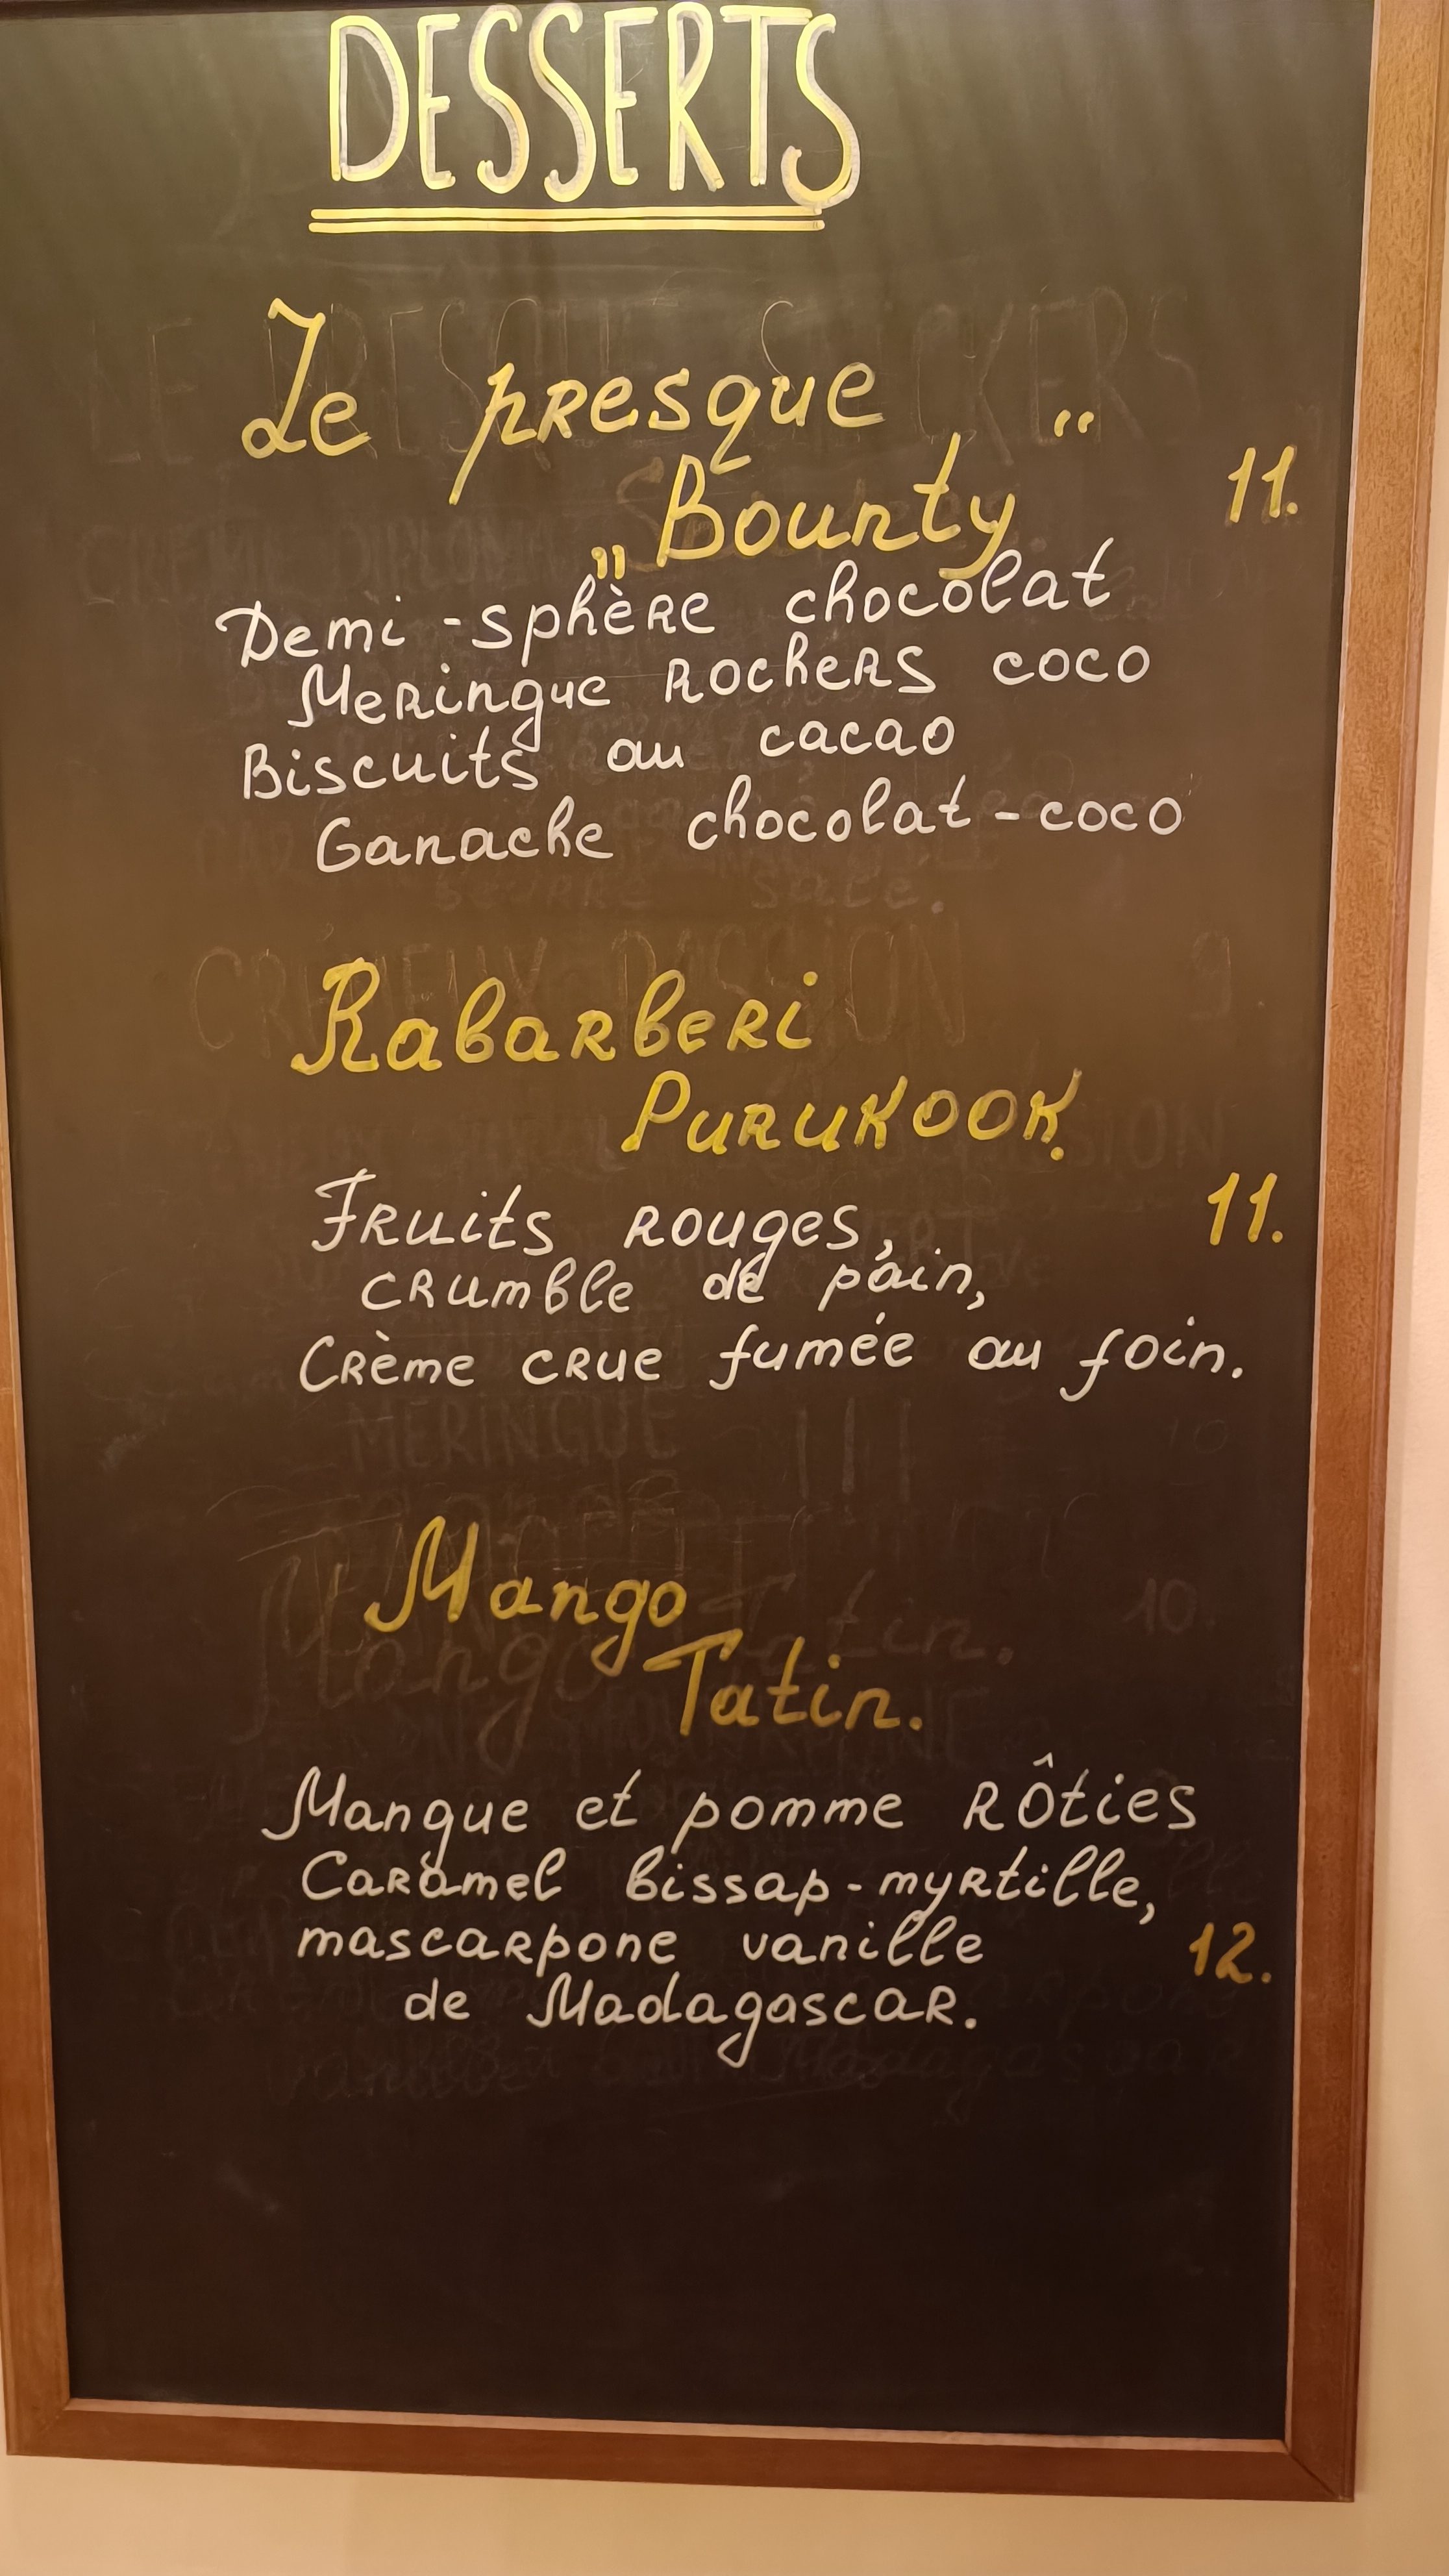 DESSERTS
Le presque "
„Bounty 11.
Demi-sphère chocolat
Meringue Rochers coco
Biscuits au cacao
Ganache chocolat-coco
Rabarberi
Purukook.
Fruits rouges, 11.
crumble de pain,
Crème crue fumée au foin.
Mango
Tatin.
Mangue et pomme rôties
Caramel bissap-myrtille,
mascarpone vanille 12.
de Madagascar.